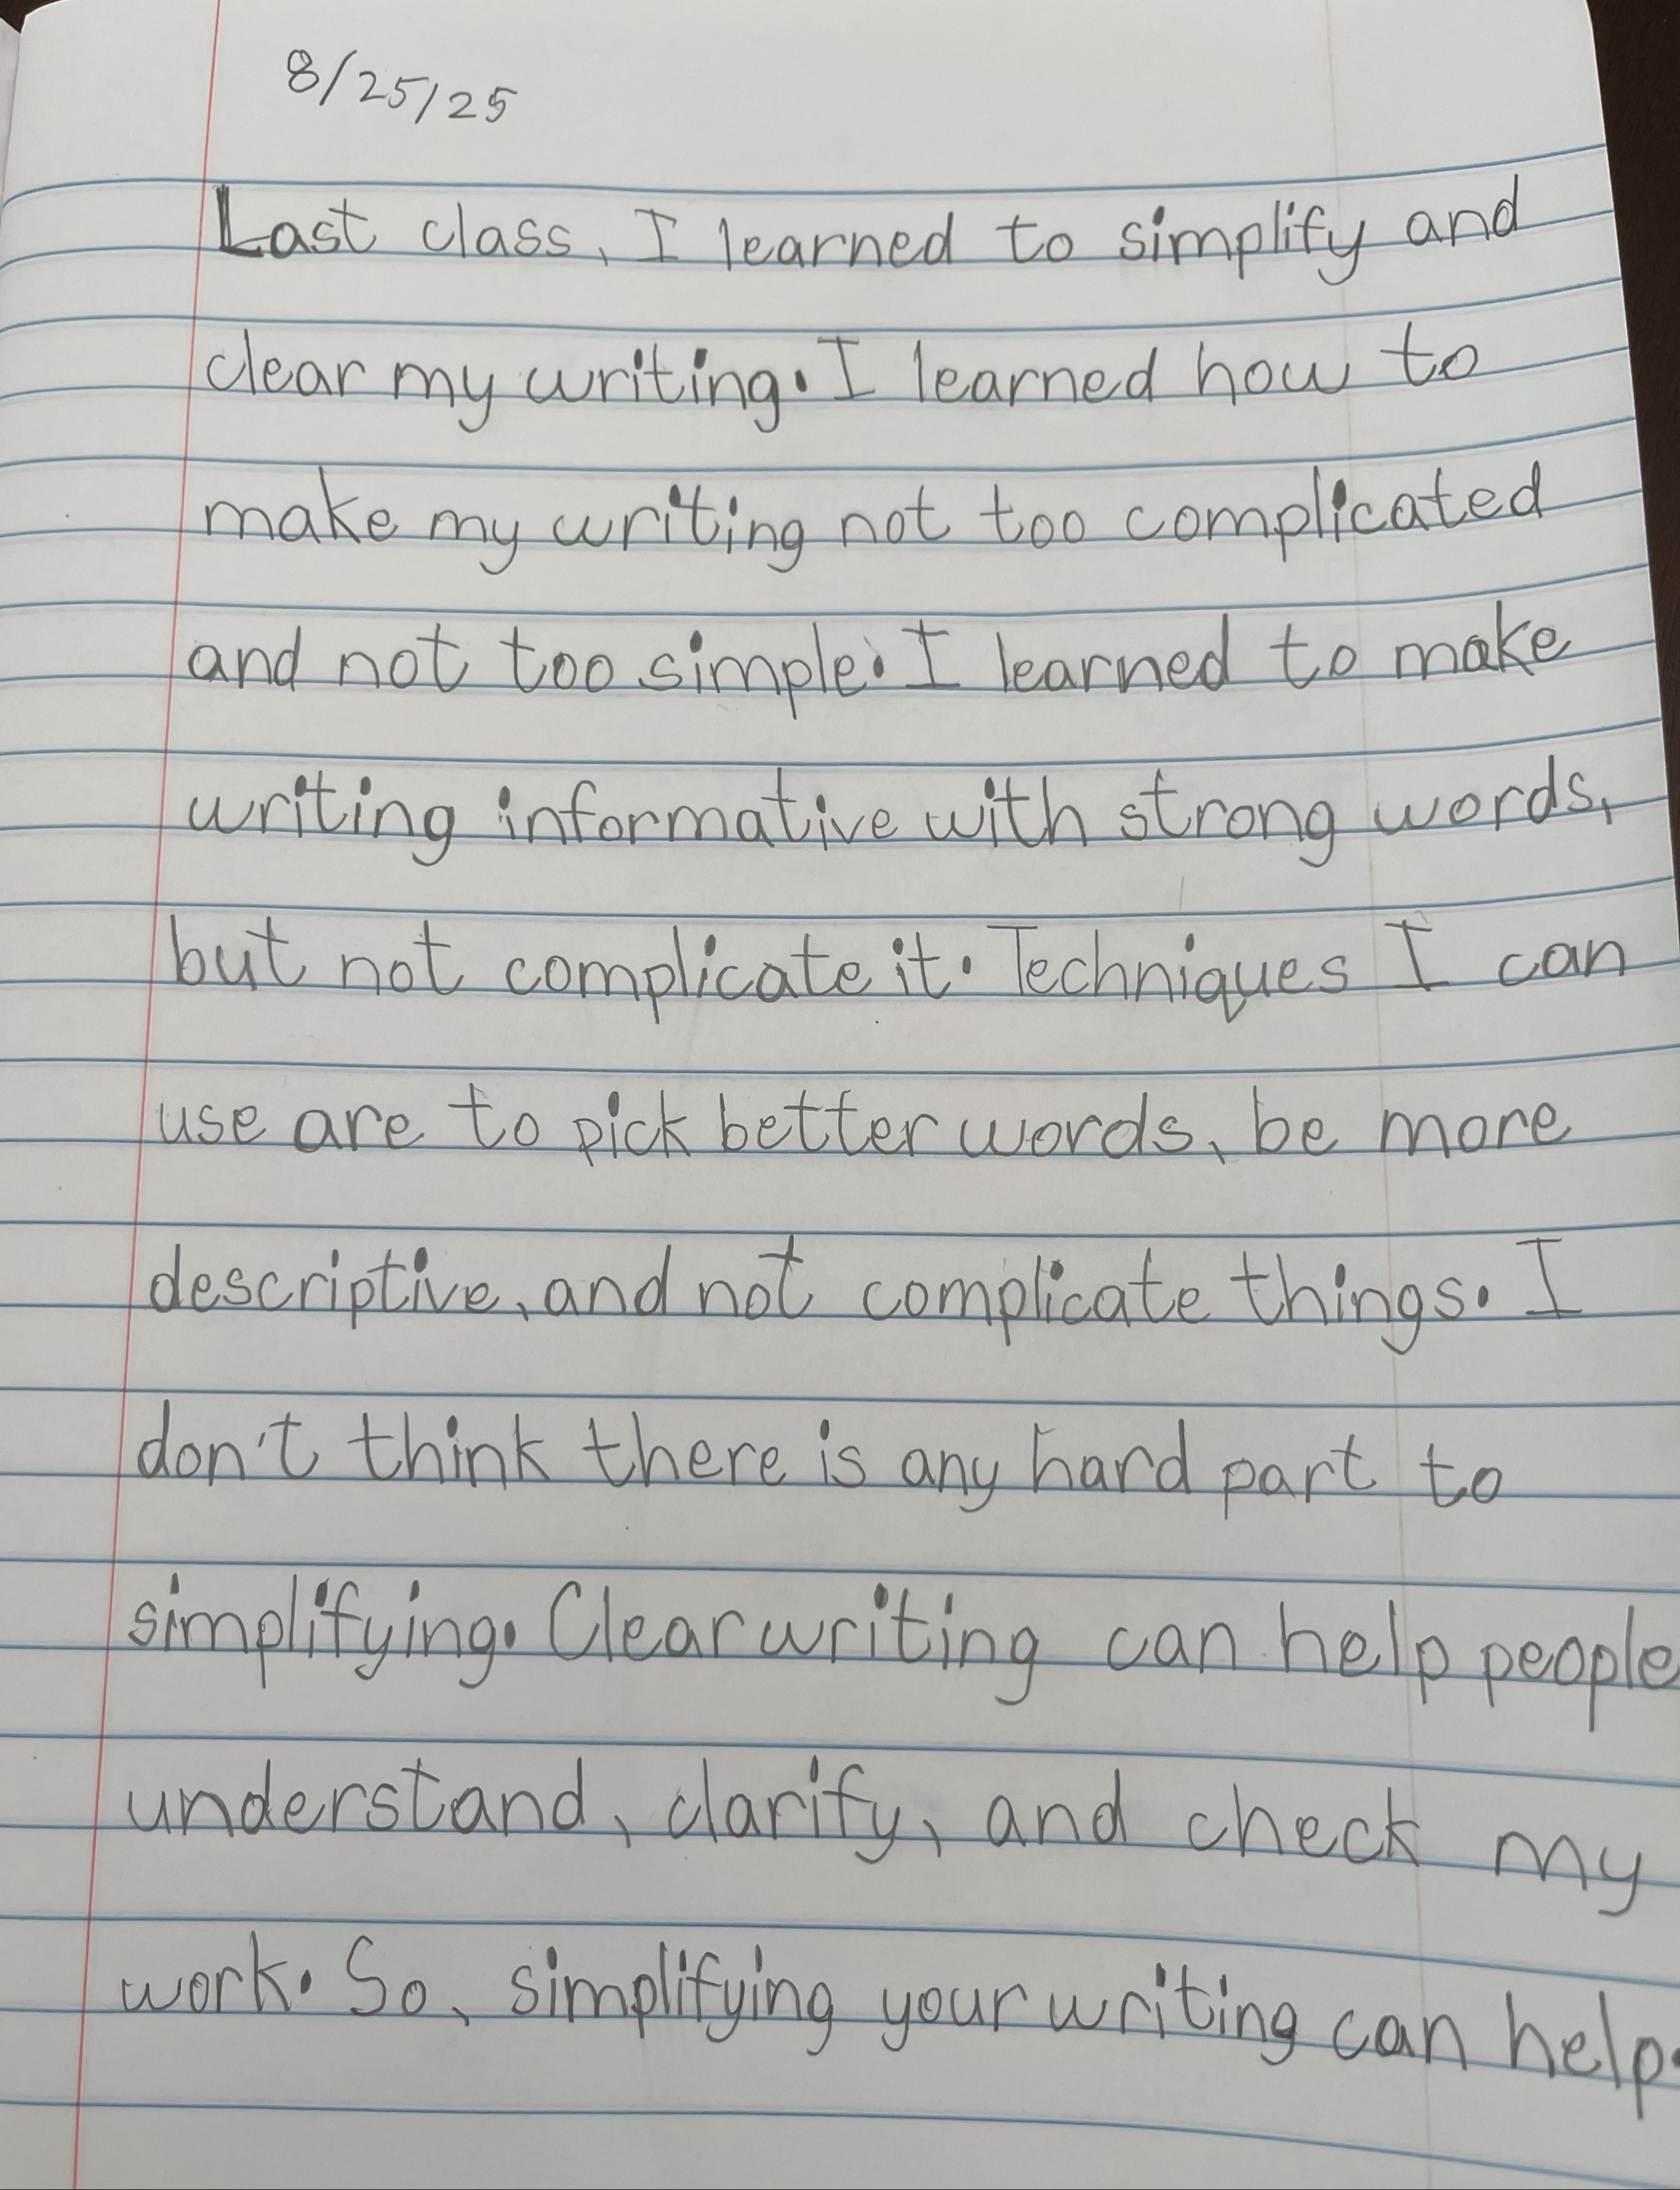 8/25/25
Last class, I learned to simplify and
clear my writing. I learned how to
make my writing not too complicated
and not too simple. I learned to make
writing informative with strong words,
but not complicate it. Techniques I can
use are to pick better words, be more
descriptive, and not complicate things. I
don't think there is any hard part to
simplifying. Clear writing can help people
understand, clarify, and check my
work. So, simplifying your writing can help.